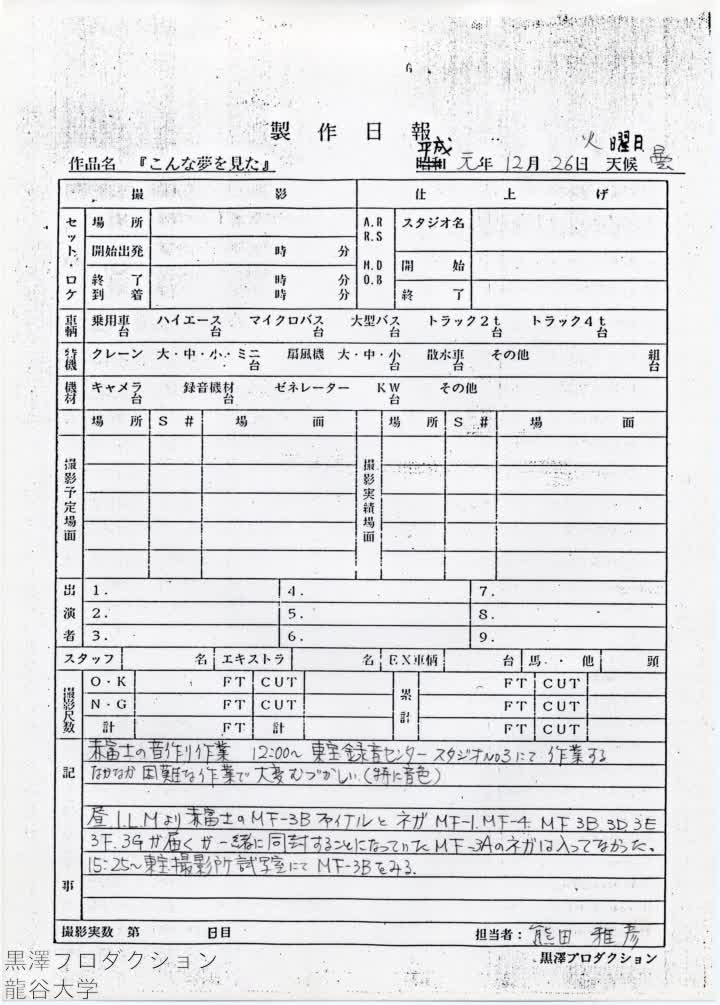 製作日報
火曜日
作品名 『こんな夢を見た』 平成 昭和 元年 12月 26日 天候 曇
撮影 仕上げ
セット・ロケ 場所 A.R R.S M.D O.B スタジオ名
開始出発 時 分 開始
終了到着 時 分 時 分 終了
車輌 乗用車 台 ハイエース 台 マイクロバス 台 大型バス 台 トラック2t 台 トラック4t 台
特機 クレーン 大・中・小・ミニ 台 扇風機 大・中・小 台 散水車 台 その他 組 台
機材 キャメラ 台 録音機材 台 ゼネレーター KW 台 その他
撮影予定場面 場所 S# 場面 撮影実績場面 場所 S# 場面
出演者 1. 4. 7.
2. 5. 8.
3. 6. 9.
スタッフ 名 エキストラ 名 EX車輌 台 馬・他 頭
撮影尺数 O・K FT CUT 累計 FT CUT
N・G FT CUT FT CUT
計 FT 計 FT CUT
記事
赤富士の音作り作業 12:00〜 東宝録音センター スタジオNo3にて 作業する
なかなか困難な作業で大変むづかしい。(特に音色)
昼 I.L.Mより赤富士のMF-3Bファイナルと ネガ MF-1.MF-4. MF 3B.3D.3E
3F.3Gが届くが一緒に同封することになっていたMF-3Aのネガは入ってなかった。
15:25〜東宝撮影所試写室にてMF-3Bをみる.
撮影実数 第 日目 担当者: 熊田 雅彦
黒澤プロダクション
黒澤プロダクション
龍谷大学